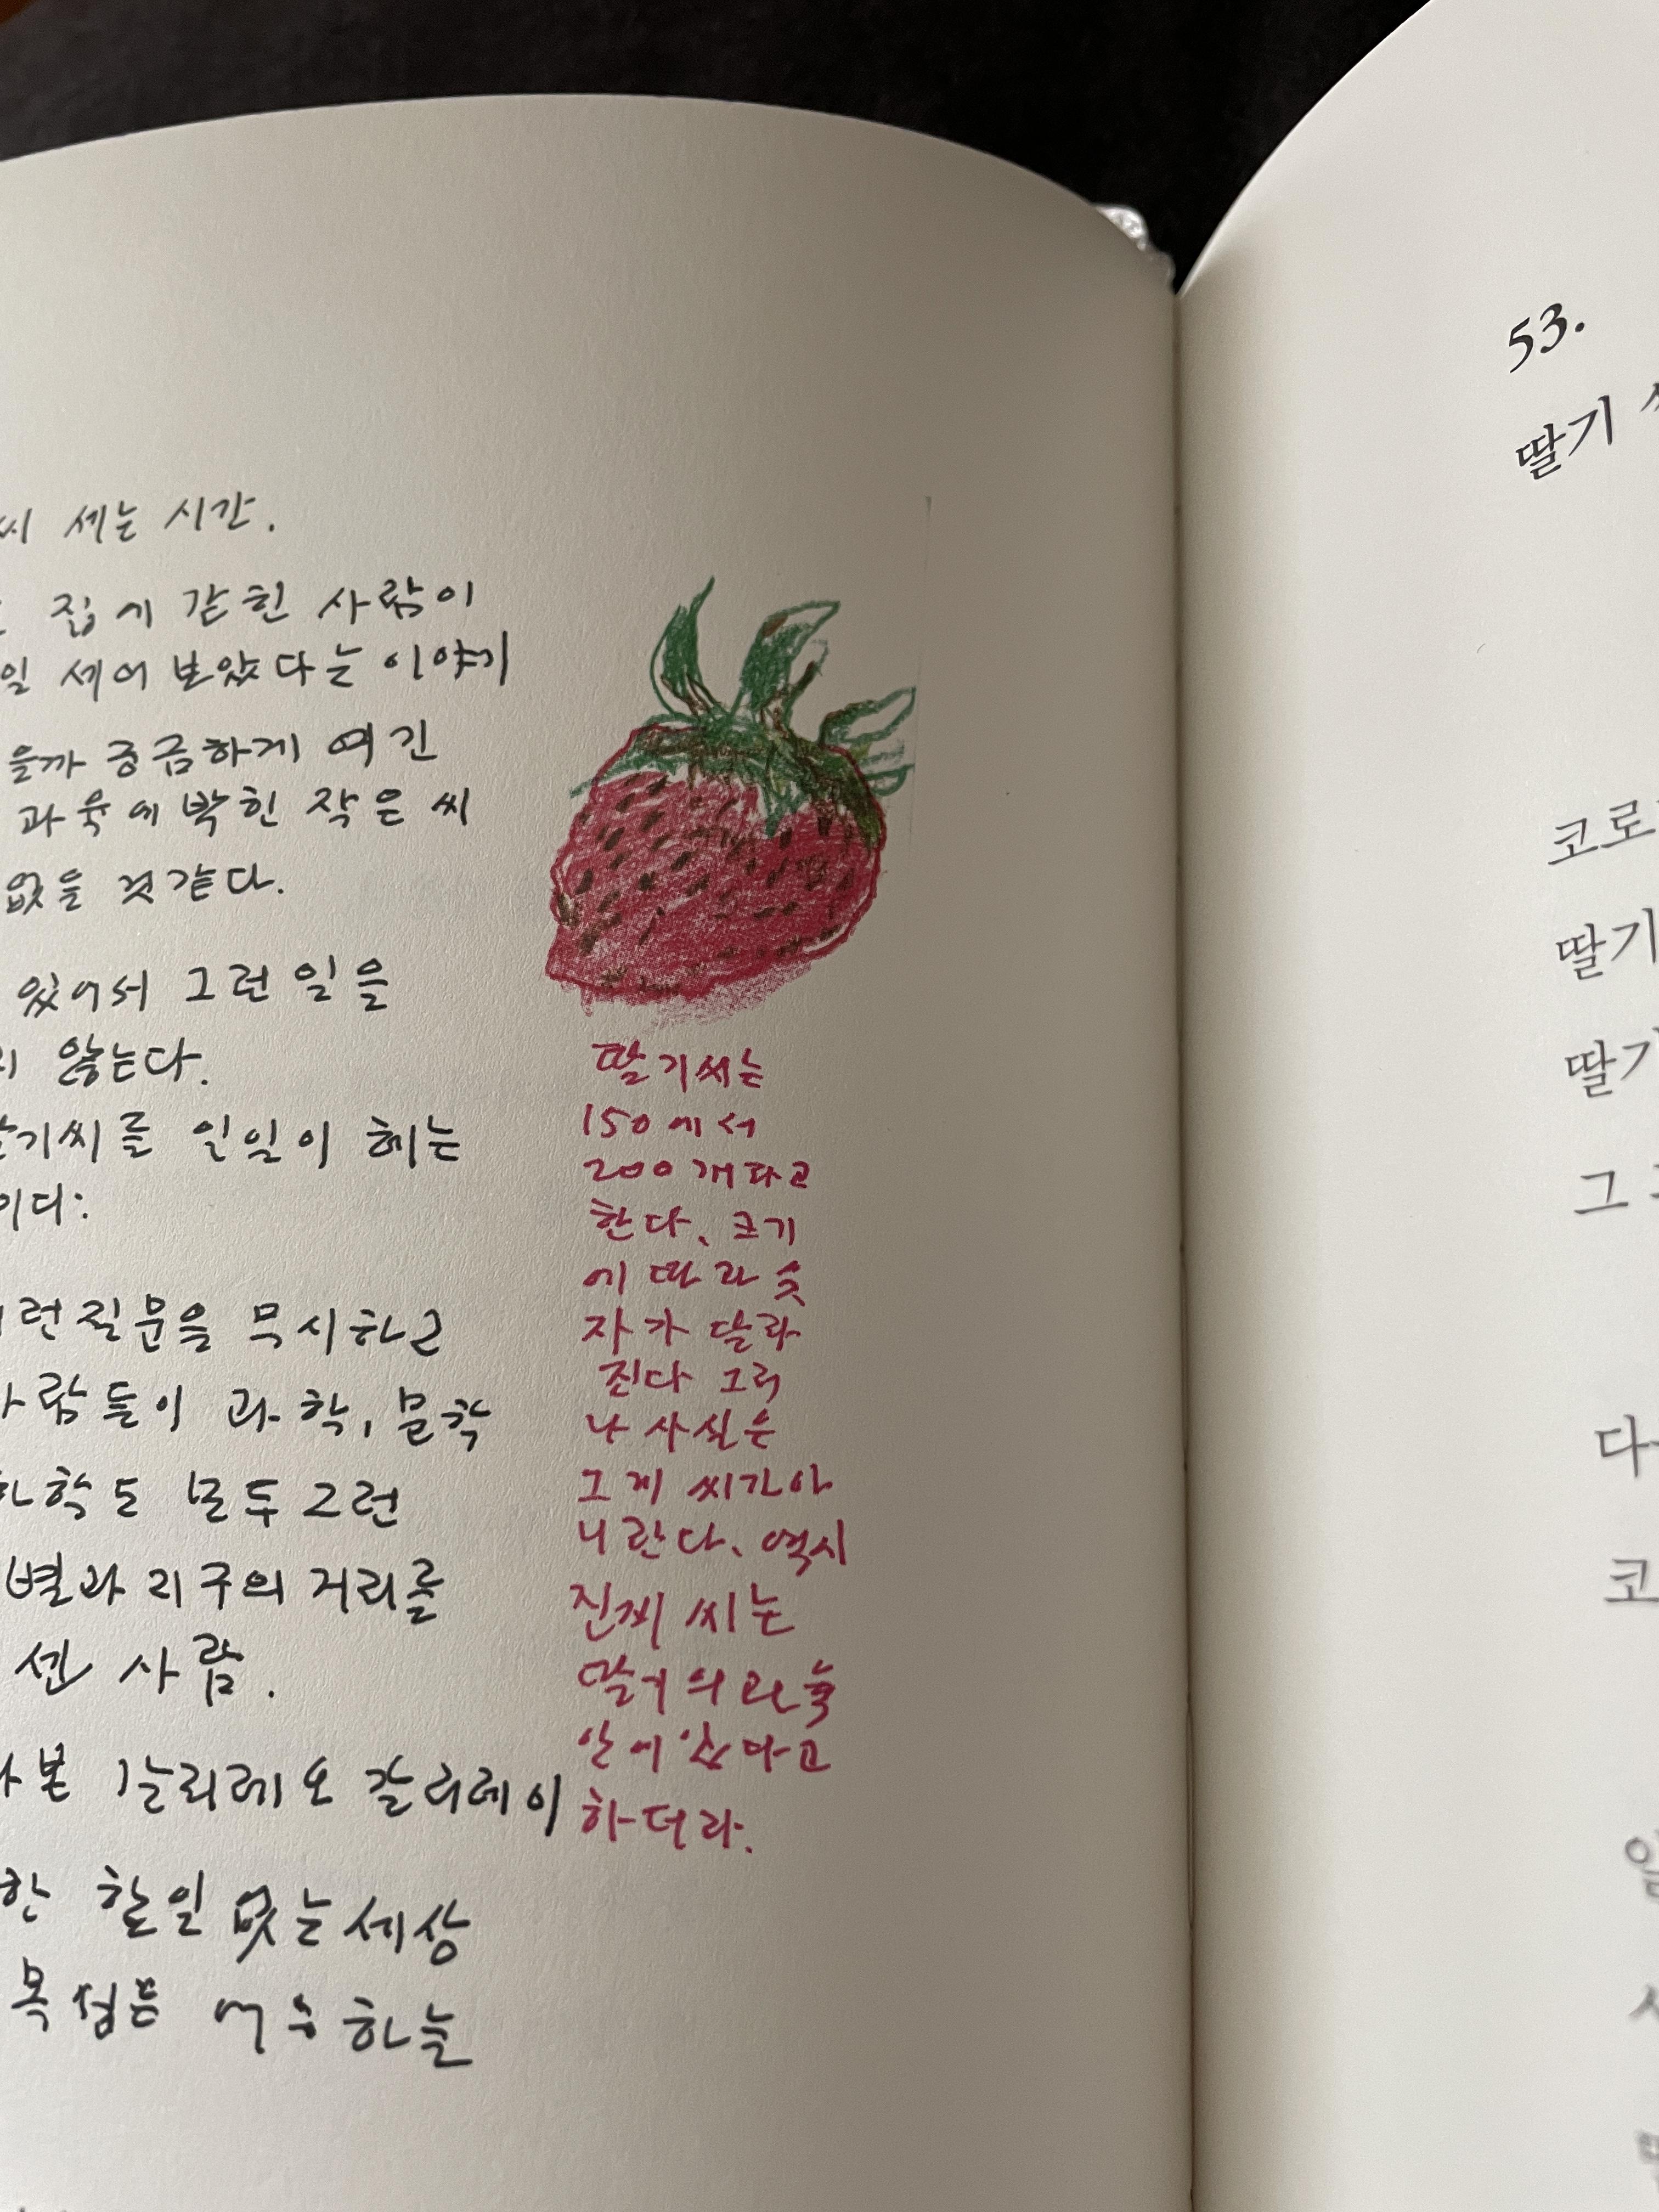 씨 세는 시간.
집에 갇힌 사람이
일 세어 보았다는 이야기
을까 궁금하게 여긴
과육에 박힌 작은 씨
없을 것 같다.
있어서 그런 일을
않는다.
기씨를 일일이 헤는
이다:
런 질문을 무시하고
람들이 과학, 문학
학도 모두 그런
별과 지구의 거리를
센 사람.
본 갈릴레오 갈릴레이
한 할일 없는 세상
목성은 여주 하늘
딸기씨는
150에서
200개라고
한다. 크기
에 따라 숫
자가 달라
진다 그러
나 사실은
그게 씨가 아
니란다. 역시
진짜 씨는
딸기의 과육
안에 있다고
하더라.
53.
딸기
코로
딸기
딸기
그
다
코